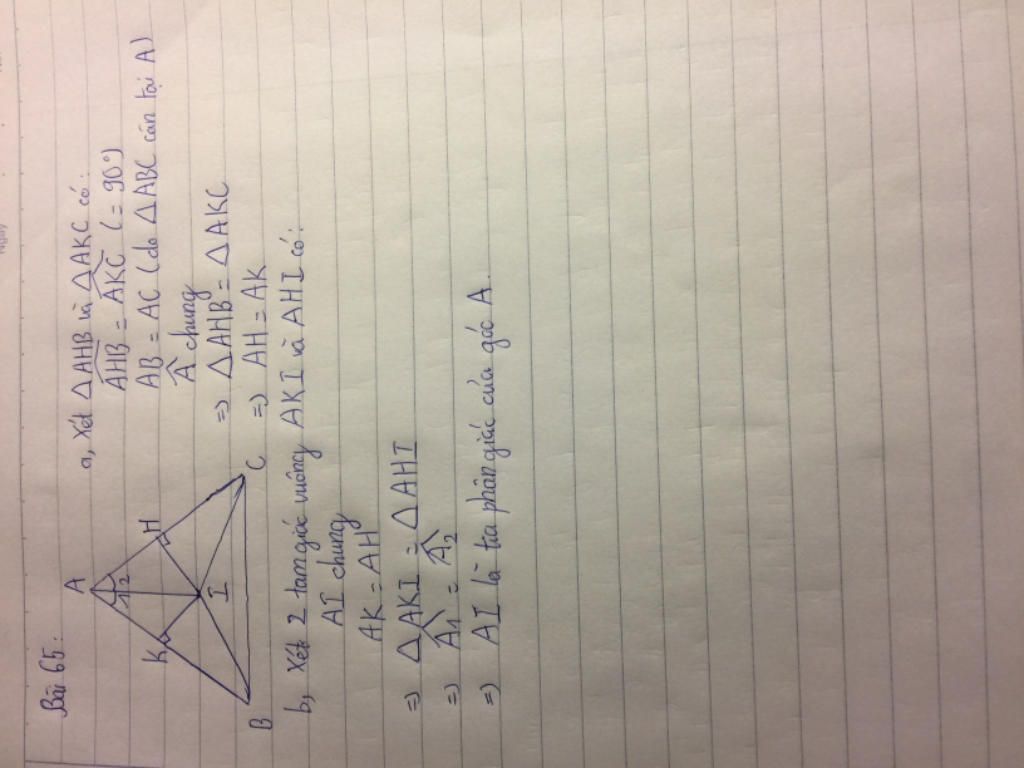 Bài 65:
A
1 2
K
H
I
B
C
a, Xét △AHB và △AKC có:
\widehat{AHB} = \widehat{AKC} (= 90°)
AB = AC (do △ABC cân tại A)
\widehat{A} chung
=> △AHB = △AKC
=> AH = AK
b, Xét 2 tam giác vuông AKI và AHI có:
AI chung
AK = AH
=> △AKI = △AHI
=> \widehat{A_1} = \widehat{A_2}
=> AI là tia phân giác của góc A.